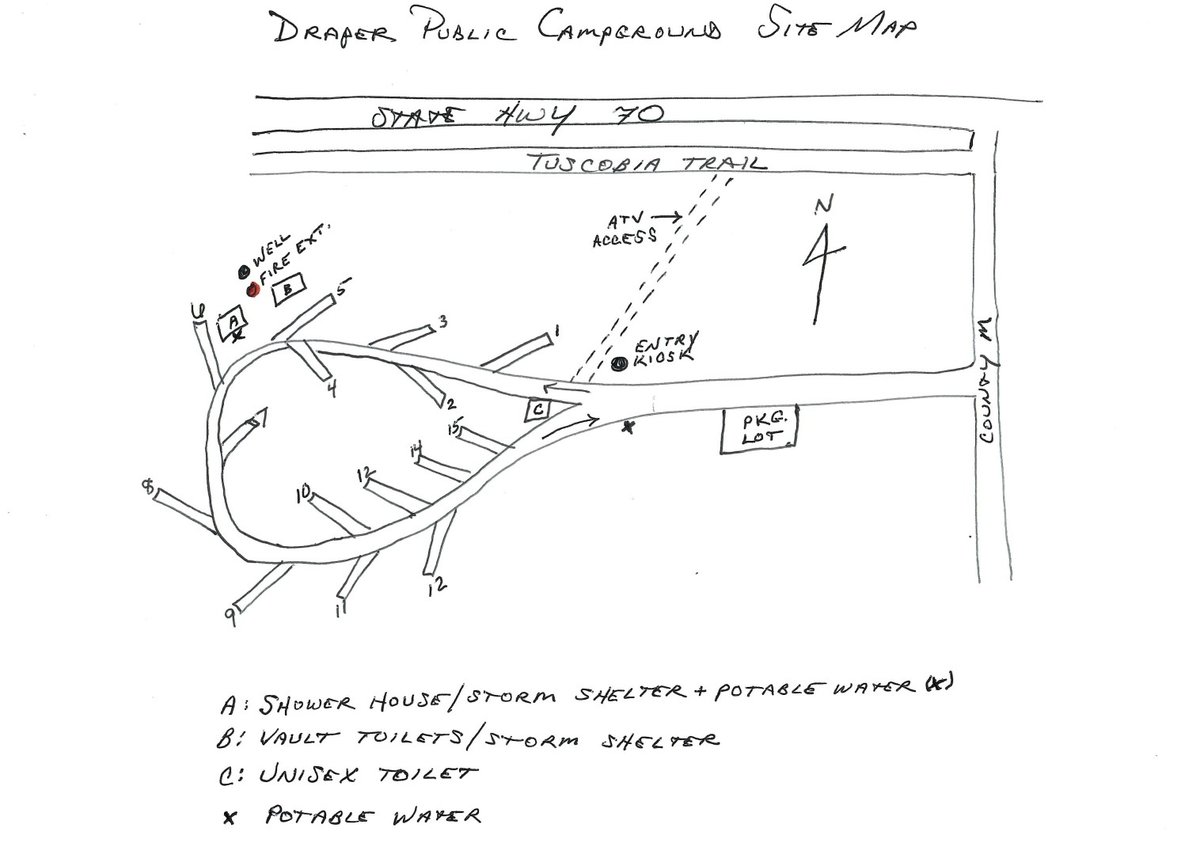 DRAPER PUBLIC CAMPGROUND SITE MAP
STATE HWY 70
TUSCOBIA TRAIL
ATV →
ACCESS
N
WELL
FIRE EXT.
B
A
x
6
5
3
1
4
2
ENTRY
KIOSK
C
x
PKG.
LOT
COUNTY M
7
15
14
12
10
8
9
11
12
A: SHOWER HOUSE/STORM SHELTER + POTABLE WATER (x)
B: VAULT TOILETS/STORM SHELTER
C: UNISEX TOILET
x POTABLE WATER